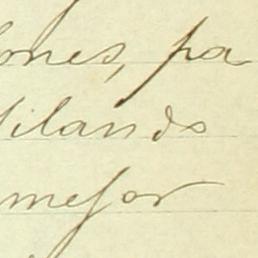 ones, pa
ilando
mejor